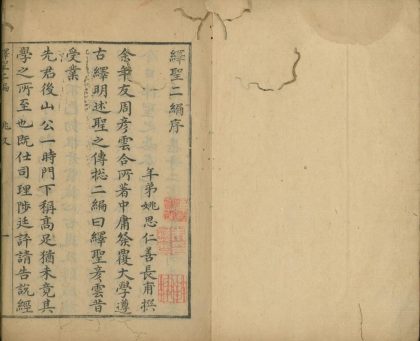 繹聖二編序
年弟姚思仁善長甫撰
余年友周彥雲合所著中庸發覆大學遵
古繹明述聖之傳揔二編曰繹聖彥雲昔
受業
先君後山公一時門下稱高足猶未竟其
學之所至也既仕司理陟廷評請告説經
繹聖二編
一